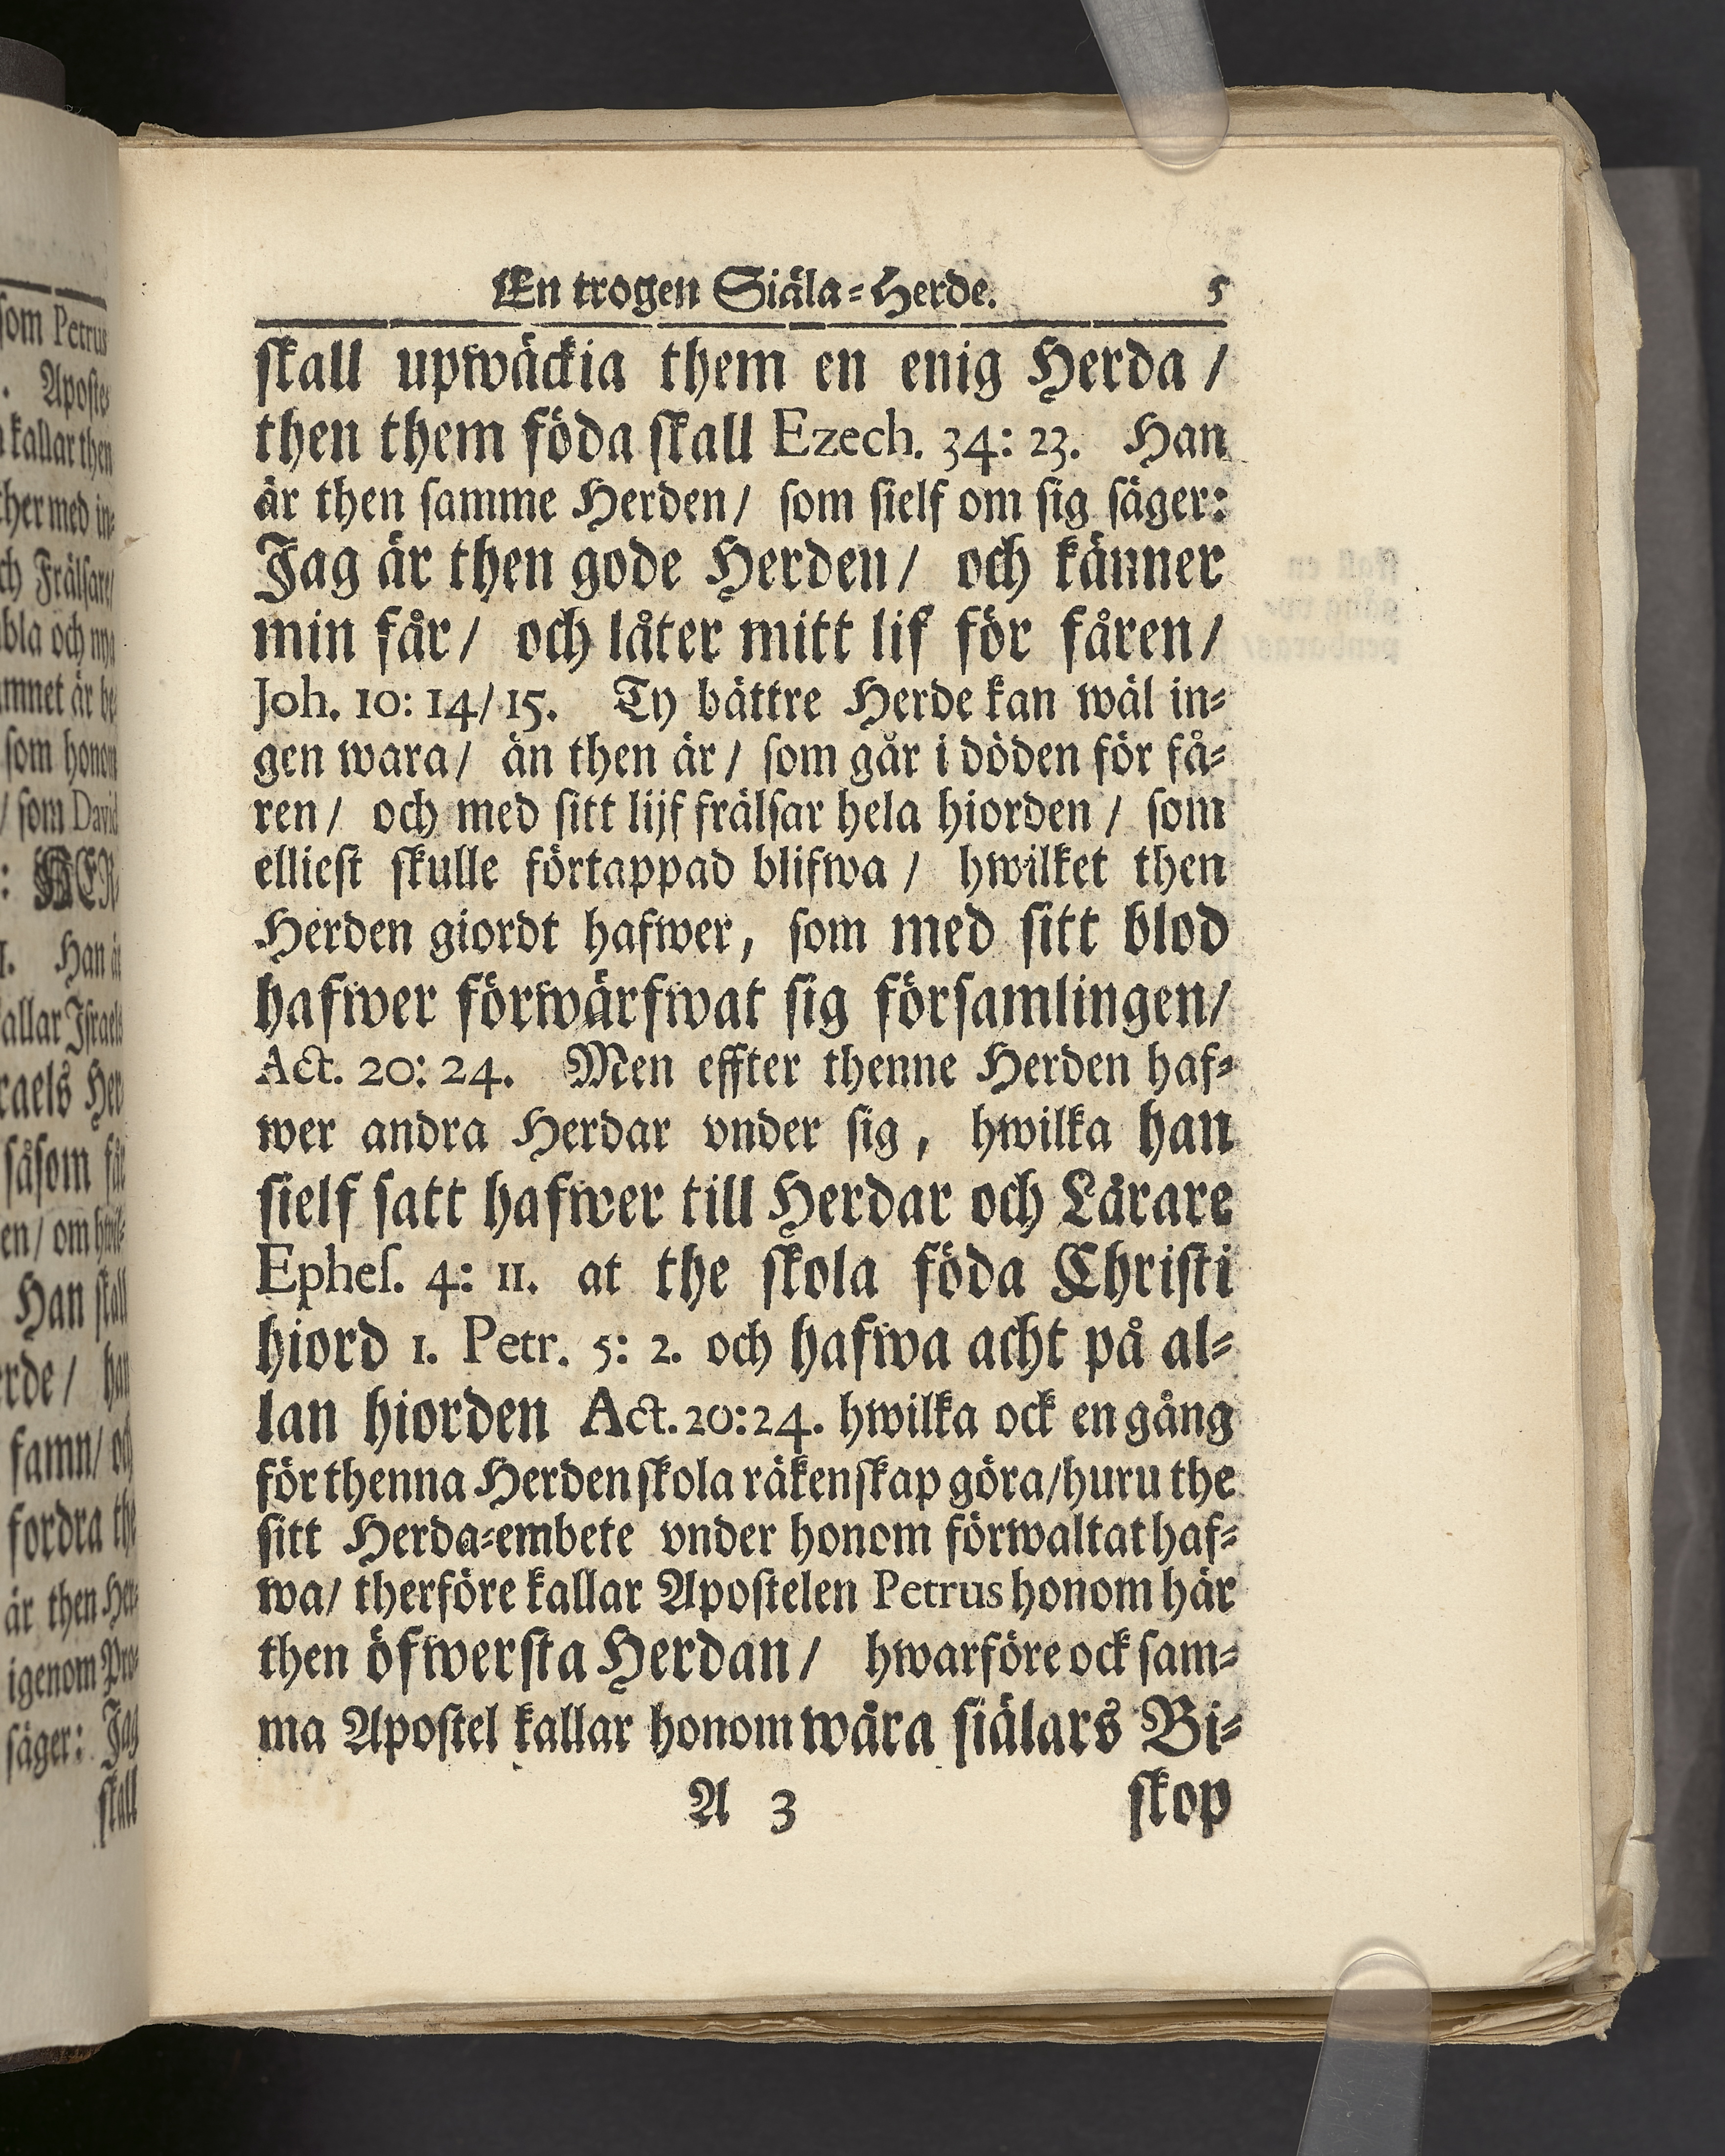 En trogen Siäla-Herde. 5
skall upwäckia them en enig Herda /
then them föda skall Ezech. 34: 23. Han
är then samme Herden / som sielf om sig säger:
Jag är then gode Herden / och känner
min får / och låter mitt lif för fåren /
Joh. 10: 14/15. Ty bättre Herde kan wäl in-
gen wara / än then är / som går i döden för få-
ren / och med sitt lijf frälsar hela hiorden / som
elliest skulle förtappad blifwa / hwilket then
Herden giordt hafwer, som med sitt blod
hafwer förwärfwat sig församlingen /
Act. 20: 24. Men effter thenne Herden haf-
wer andra Herdar vnder sig, hwilka han
sielf satt hafwer till Herdar och Lärare
Ephes. 4: 11. at the skola föda Christi
hiord 1. Petr. 5: 2. och hafwa acht på al-
lan hiorden Act. 20:24. hwilka ock en gång
för thenna Herden skola räkenskap göra / huru the
sitt Herda-embete vnder honom förwaltat haf-
wa / therföre kallar Apostelen Petrus honom här
then öfwersta Herdan / hwarföre ock sam-
ma Apostel kallar honom wåra siälars Bi-
A 3 skop